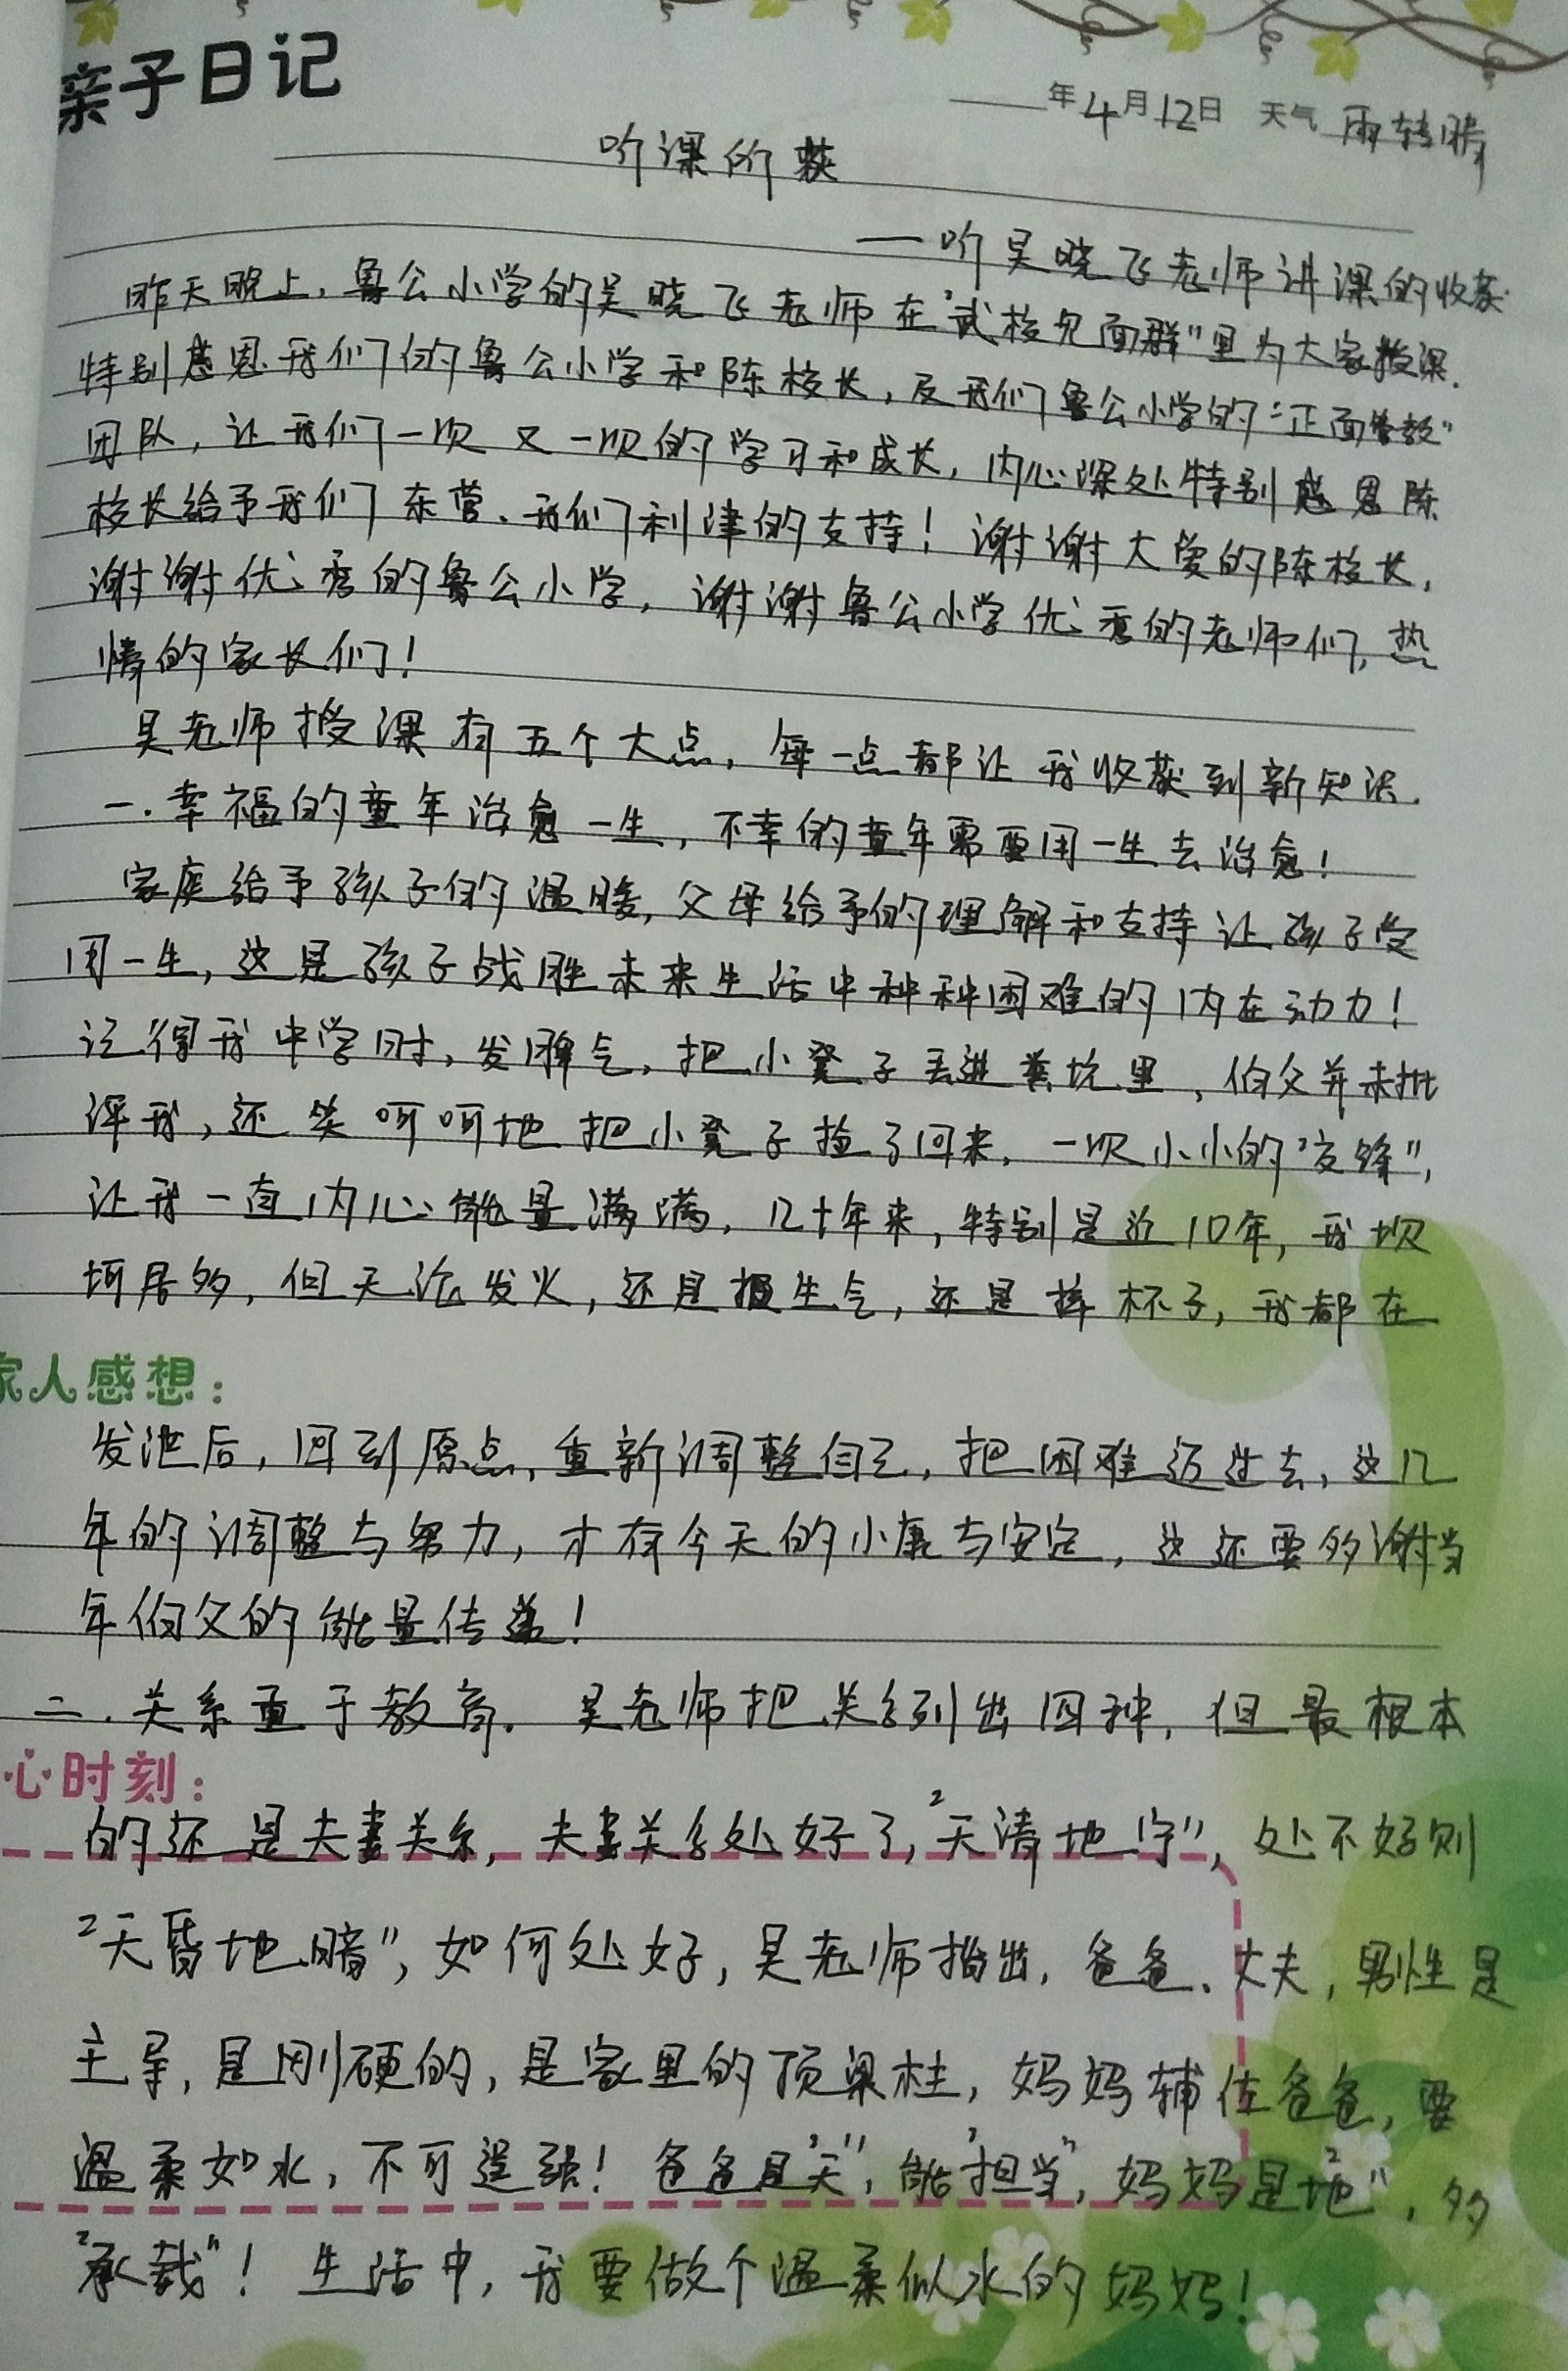 亲子日记
年4月12日 天气 雨转晴
听课所获
——听吴晓飞老师讲课的收获
昨天晚上,鲁公小学的吴晓飞老师在"武校见面群"里为大家授课.
特别感恩我们的鲁公小学和陈校长,及我们鲁公小学的"正面管教"
团队,让我们一次又一次的学习和成长,内心深处特别感恩陈
校长给予我们东营、我们利津的支持!谢谢大爱的陈校长,
谢谢优秀的鲁公小学,谢谢鲁公小学优秀的老师们,热
情的家长们!
吴老师授课有五个大点,每一点都让我收获到新知识.
一.幸福的童年治愈一生,不幸的童年需要用一生去治愈!
家庭给予孩子的温暖,父母给予的理解和支持让孩子受
用一生,这是孩子战胜未来生活中种种困难的内在动力!
记得我中学时,发脾气,把小凳子丢进粪坑里,伯父并未批
评我,还笑呵呵地把小凳子捡了回来,一次小小的"交锋",
让我一直内心能量满满,几十年来,特别是近10年,我坎
坷居多,但无论发火,还是提生气,还是摔杯子,我都在
家人感想:
发泄后,回到原点,重新调整自己,把困难迈过去,这几
年的调整与努力,才有今天的小康与安定,这还要多谢当
年伯父的能量传递!
二.关系重于教育.吴老师把关系列出四种,但最根本
心时刻:
的还是夫妻关系,夫妻关系处好了,"天清地宁",处不好则
"天昏地暗",如何处好,吴老师指出,爸爸、丈夫,男性是
主导,是刚硬的,是家里的顶梁柱,妈妈辅佐爸爸,要
温柔如水,不可逞强!爸爸是"天",能"担当",妈妈是"地",多
"承载"!生活中,我要做个温柔似水的妈妈!